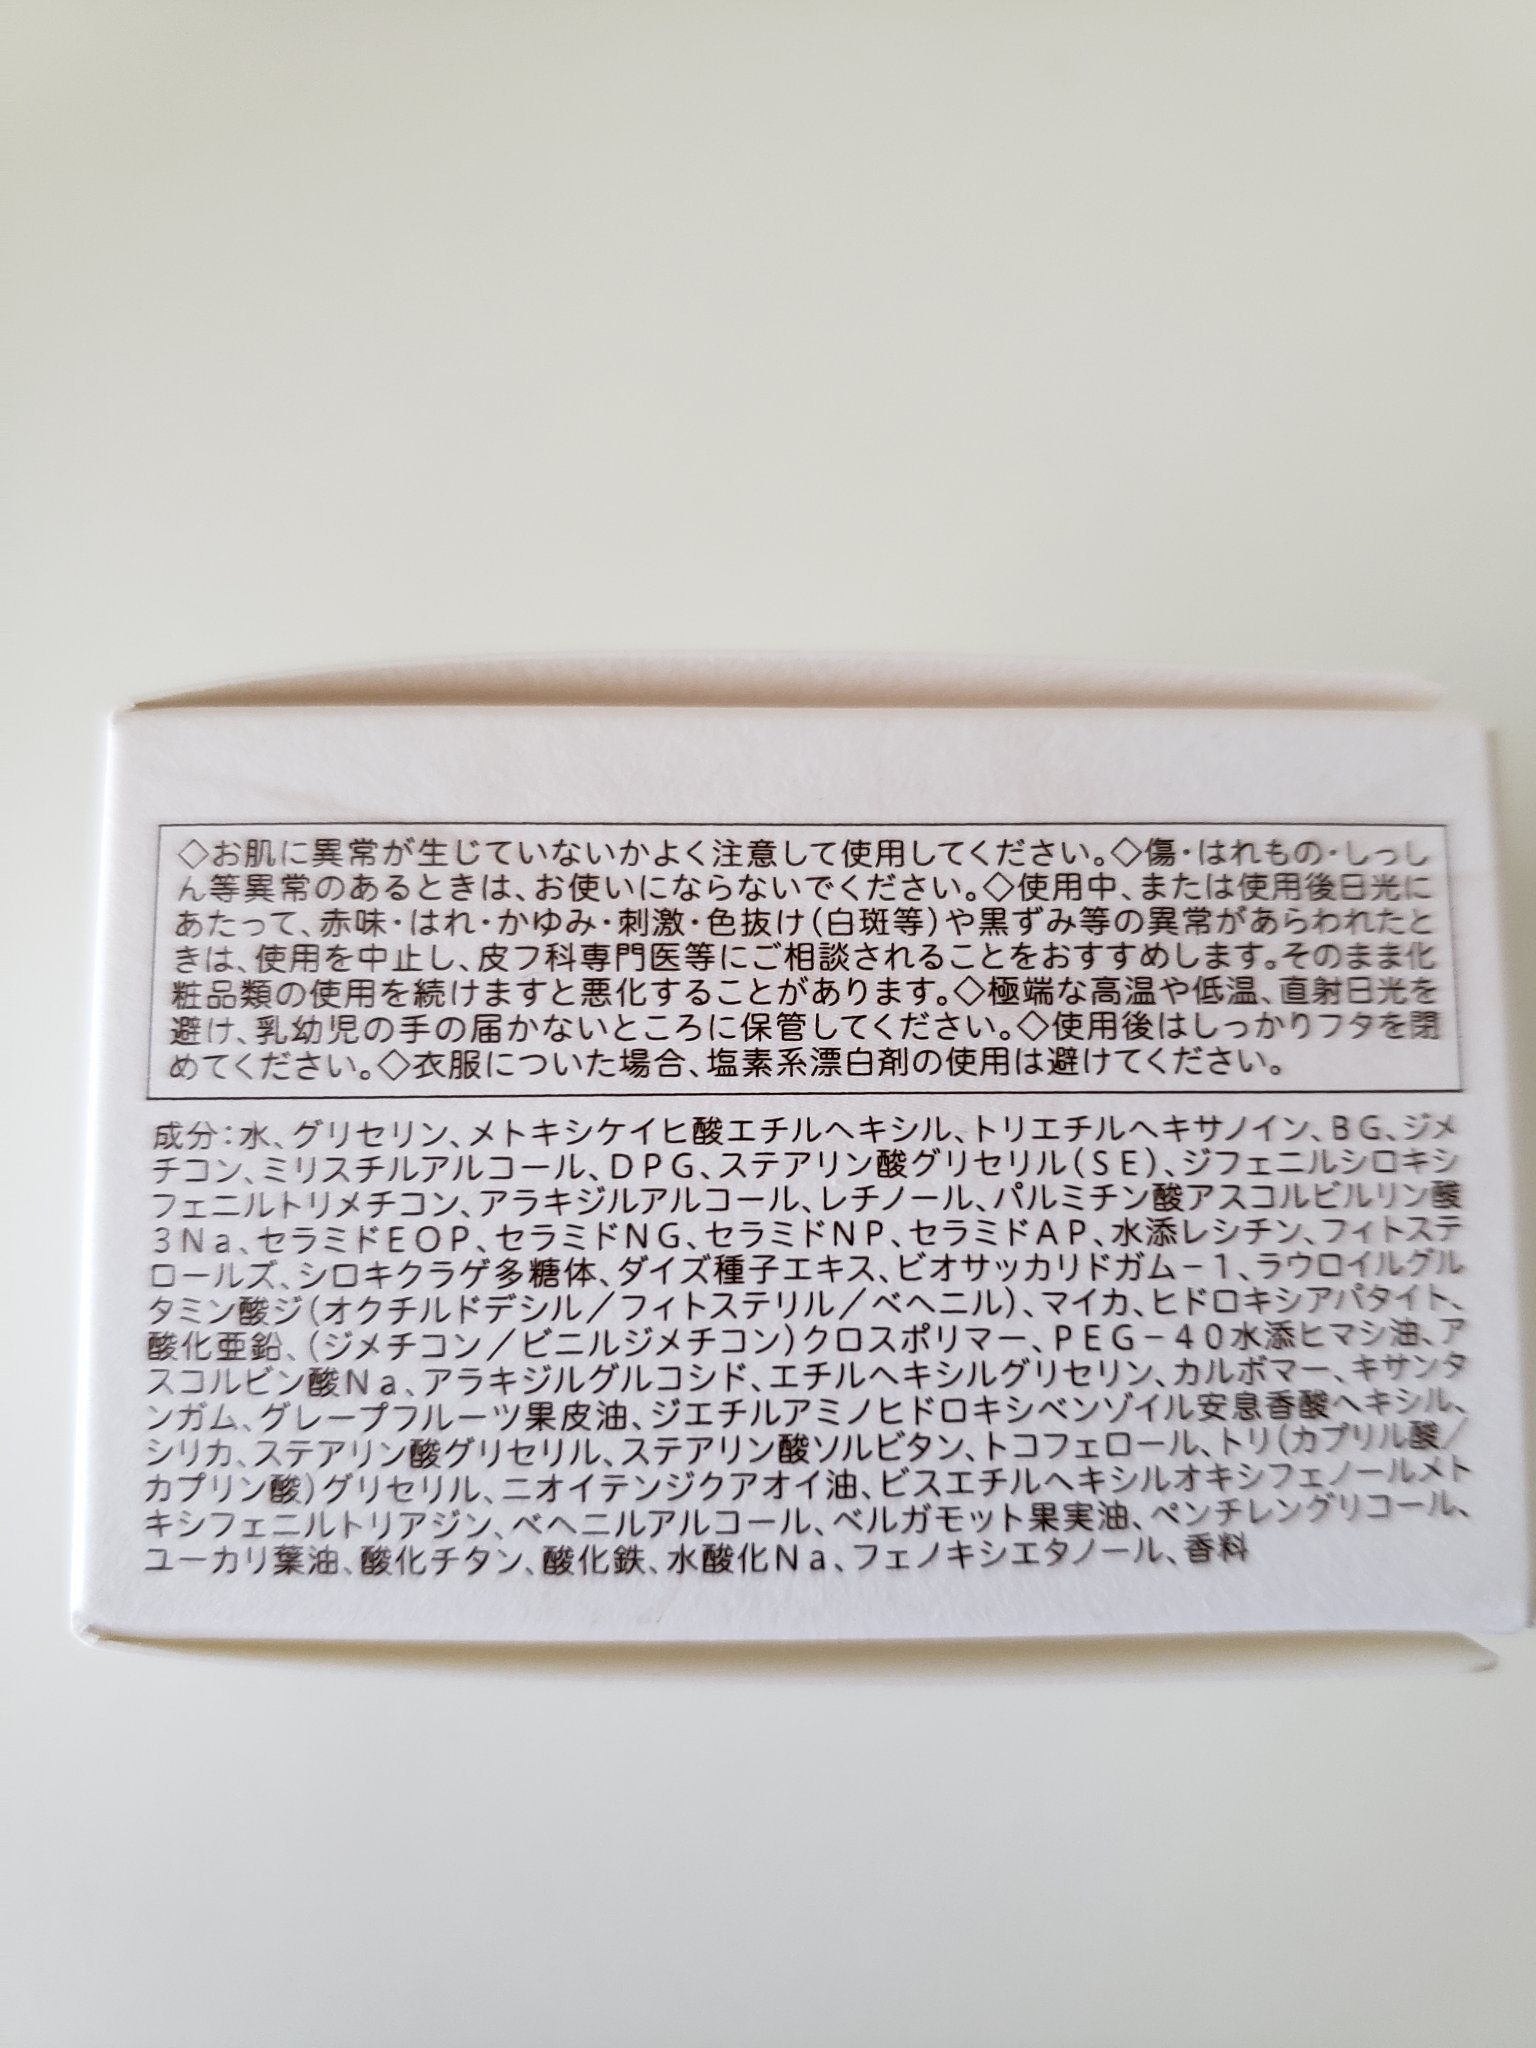 ◇お肌に異常が生じていないかよく注意して使用してください。◇傷・はれもの・しっし
ん等異常のあるときは、お使いにならないでください。◇使用中、または使用後日光に
あたって、赤味・はれ・かゆみ・刺激・色抜け(白斑等)や黒ずみ等の異常があらわれたと
きは、使用を中止し、皮フ科専門医等にご相談されることをおすすめします。そのまま化
粧品類の使用を続けますと悪化することがあります。◇極端な高温や低温、直射日光を
避け、乳幼児の手の届かないところに保管してください。◇使用後はしっかりフタを閉
めてください。◇衣服についた場合、塩素系漂白剤の使用は避けてください。
成分:水、グリセリン、メトキシケイヒ酸エチルヘキシル、トリエチルヘキサノイン、BG、ジメ
チコン、ミリスチルアルコール、DPG、ステアリン酸グリセリル(SE)、ジフェニルシロキシ
フェニルトリメチコン、アラキジルアルコール、レチノール、パルミチン酸アスコルビルリン酸
3Na、セラミドEOP、セラミドNG、セラミドNP、セラミドAP、水添レシチン、フィトステ
ロールズ、シロキクラゲ多糖体、ダイズ種子エキス、ビオサッカリドガム-1、ラウロイルグル
タミン酸ジ(オクチルドデシル/フィトステリル/ベヘニル)、マイカ、ヒドロキシアパタイト、
酸化亜鉛、(ジメチコン/ビニルジメチコン)クロスポリマー、PEG-40水添ヒマシ油、ア
スコルビン酸Na、アラキジルグルコシド、エチルヘキシルグリセリン、カルボマー、キサンタ
ンガム、グレープフルーツ果皮油、ジエチルアミノヒドロキシベンゾイル安息香酸ヘキシル、
シリカ、ステアリン酸グリセリル、ステアリン酸ソルビタン、トコフェロール、トリ(カプリル酸/
カプリン酸)グリセリル、ニオイテンジクアオイ油、ビスエチルヘキシルオキシフェノールメト
キシフェニルトリアジン、ベヘニルアルコール、ベルガモット果実油、ペンチレングリコール、
ユーカリ葉油、酸化チタン、酸化鉄、水酸化Na、フェノキシエタノール、香料